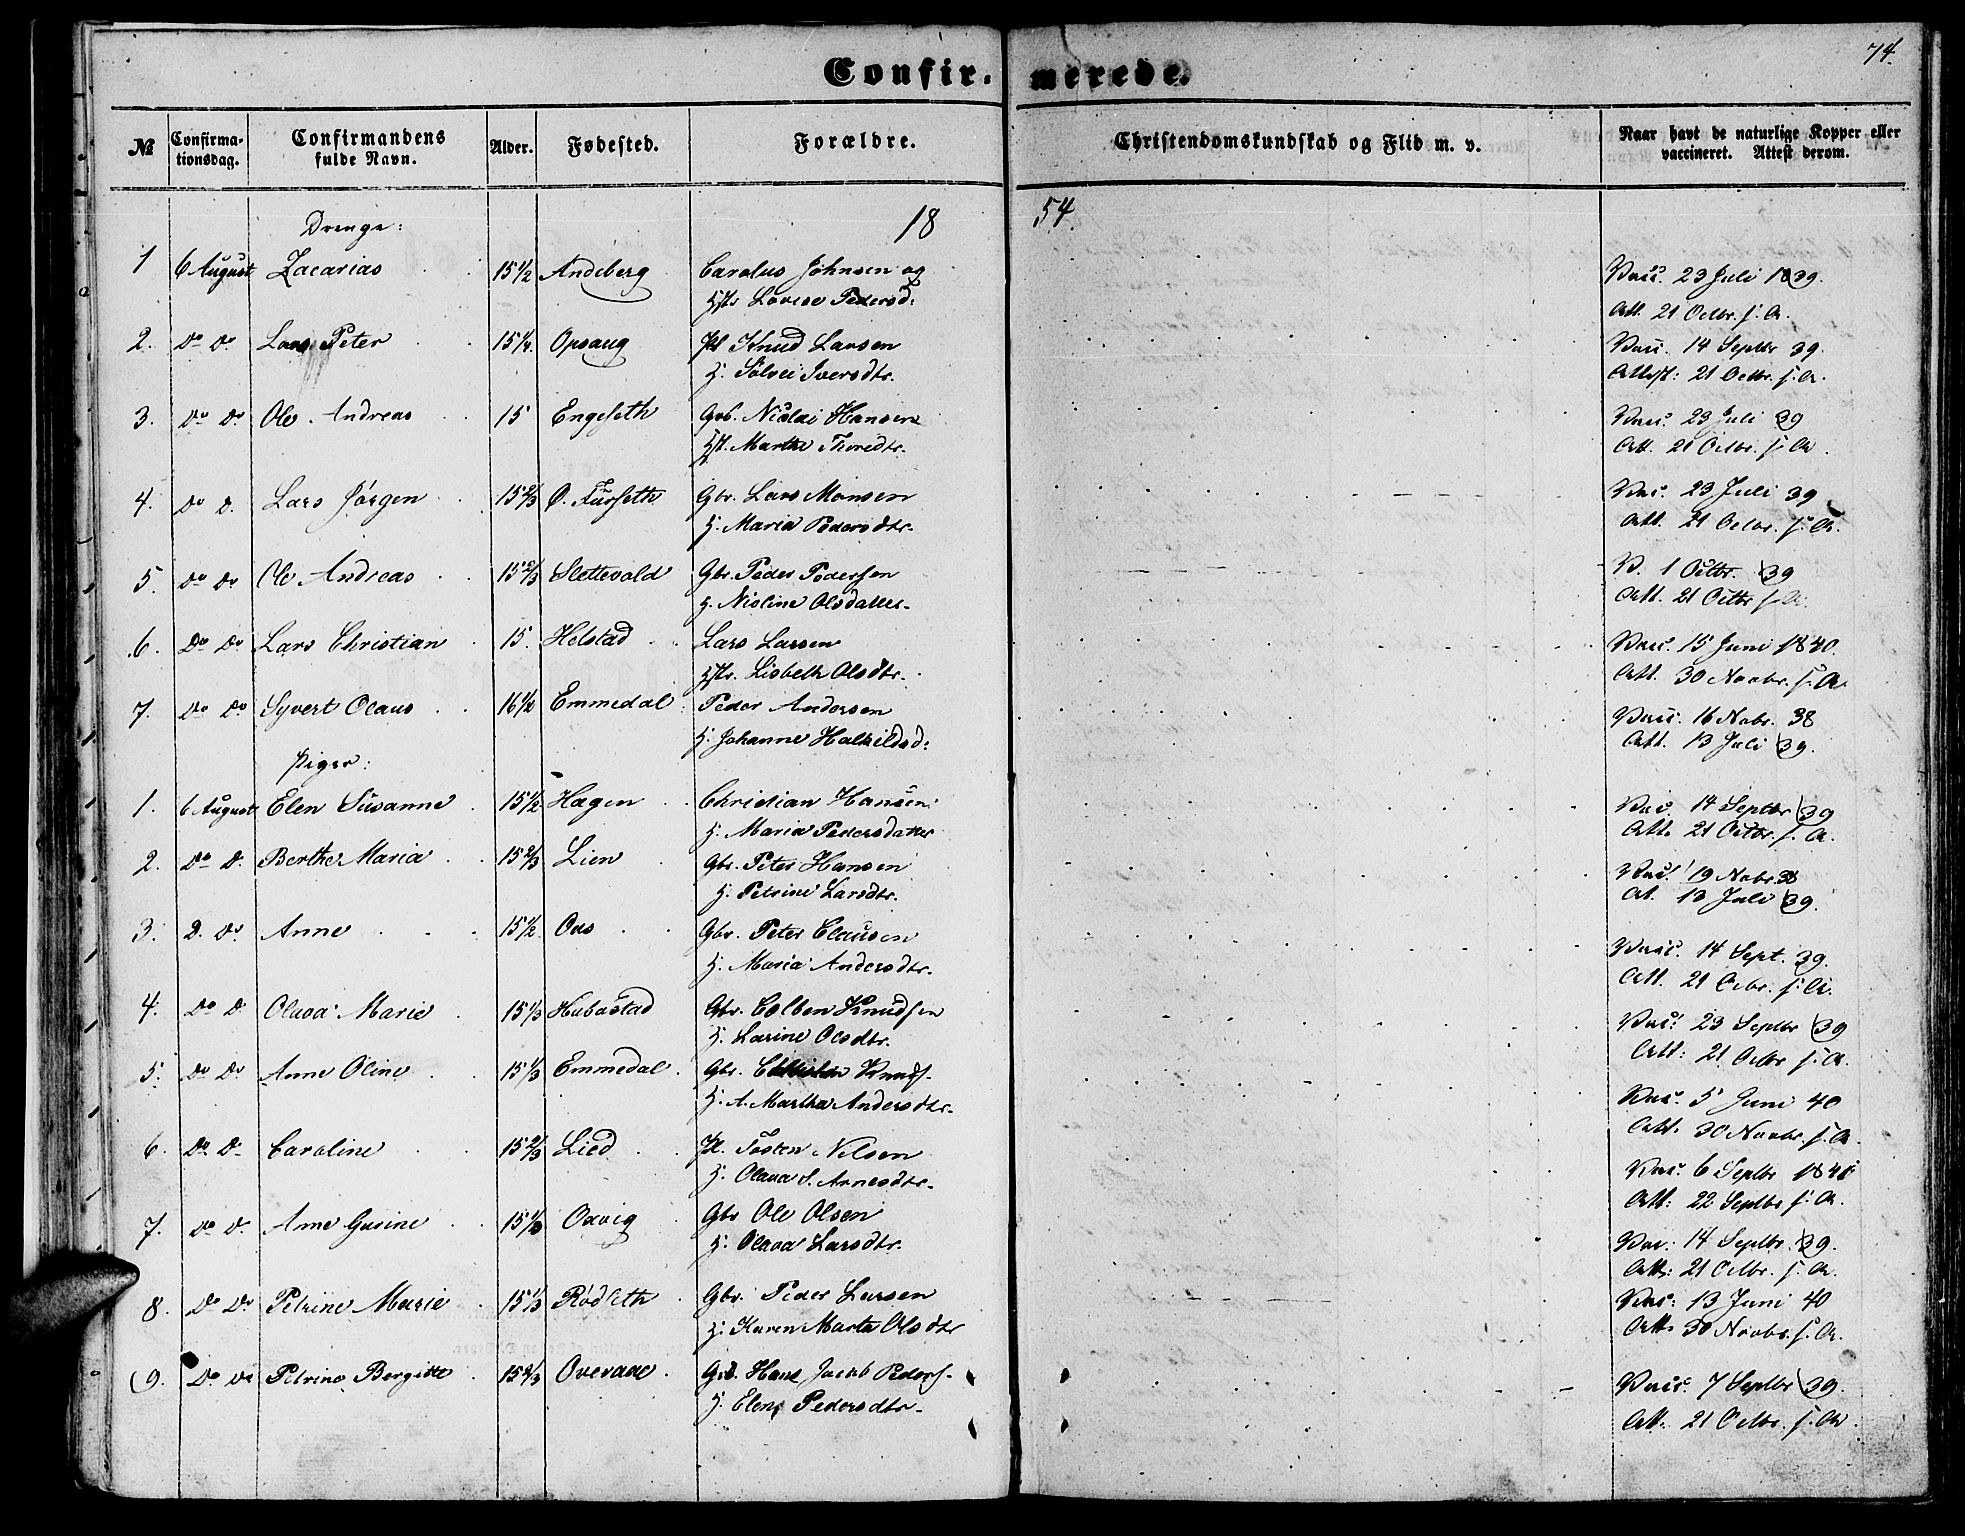 Confir- merede.
74.
№ Confirma-tionsdag. Confirmandens fulde Navn. Alder. Fødested. Forældre. Christendomskundskab og Flid m. v. Naar havt de naturlige Kopper eller vaccineret. Attest derom.
Drenge: 18 54.
1 6 August Zacarias 15 1/2 Andeberg Carolus Johnsen og Vacc. 23 Juli 1839.
Hstr Lovise Pedersd: Att. 21 Octbr. s. A.
2. Do Do Lars Peter 15 1/4. Opsaug Pl Knud Larsen Vacc. 14 Septbr 39.
H. Sølvei Iversdtr. Attest: 21 Octbr. s. A.
3. Do Do Ole Andreas 15 Engeseth Gbr. Nicolai Hansen Vacc. 23 Juli 39
Hst. Marthe Thoredtr. Att. 21 Octbr. s. A.
4. Do D. Lars Jørgen 15 2/3 Ø. Furseth Gbr. Lars Monsen Vac. 23 Juli 39
H. Maria Pedersdtr. Att. 21 Octbr. s. A.
5. Do Do Ole Andreas 15 2/3 Slettevold Gbr. Peder Pedersen V. 1 Octbr. 39
H. Nicline Olsdatter. Att. 21 Octbr s. A.
6. Do Do Lars Christian 15. Helstad Lars Larsen Vacc. 15 Juni 1840.
Hstr. Lisbeth Olsdtr. Att. 30 Novbr. s. A.
7. Do Do Syvert Olaus 16 1/2 Emmedal Peder Andersen Vacc. 16 Nobr. 38
H. Johanne Halkildsd: Att. 13 Juli 39.
Piger:
1. 6 August Elen Susanne 15 1/2 Hagen Christian Hansen Vac. 14 Septbr 39
H. Maria Pedersdatter Att. 21 Octbr. s. A.
2. Do D. Berthe Maria 15 2/3 Lien Gbr. Peter Hansen Vac. 19 Nobr. 38
H. Petrine Larsdtr. At. 13 Juli 39.
3. D. Do Anne 15 1/2 Oss Gbr. Peter Clausen Vacc. 14 Sept. 39.
H. Maria Andersdtr. Att. 21 Ocbr. s. A.
4. Do D. Olava Marie 15 1/3 Hubastad Gbr. Colben Knudsen Vac. 23 Septbr 39
H. Larine Olsdtr. Att: 21 Octbr s. A.
5. Do Do Anne Oline 15 1/3 Emmedal. Gbr. Knuds- Vac. 5 Juni 40
H. A. Martha Andersdtr. Att. 30 Novbr. s. A.
6. Do D. Caroline 15 2/3 Lied Pl. Tosten Nilsen Vac. 6 Septbr 1841
H. Olava S. Arnesdtr. Att: 22 Septbr s. A.
7. Do D. Anne Gurine 15 1/3 Oxvig Gbr Ole Olsen Vac: 14 Septbr. 39.
H. Olava Larsdtr. Att: 21 Octbr. s. A.
8. Do Do Petrine Marie 15 1/3 Rødseth Gbr. Peder Larsen Vac: 13 Juni 40
H. Karen Marta Olsdtr Att. 30 Novbr. s. A.
9. Do Do Petrine Bergitte 15 2/3 Overaae Grb. Hans Jacob Peders- Vacc. 7 Septbr 39.
H. Elen Pedersdtr. Att. 21 Octbr. s. A.